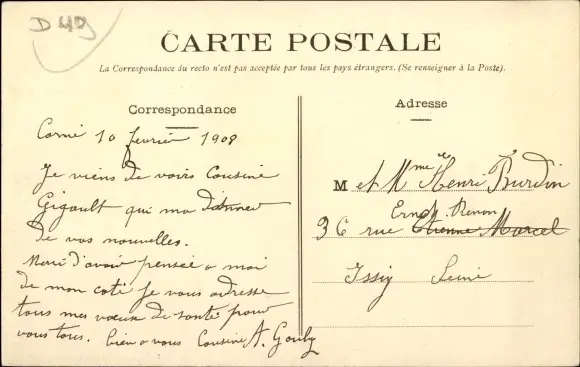 D 49
CARTE POSTALE
La Correspondance du recto n'est pas acceptée par tous les pays étrangers. (Se renseigner à la Poste).
Correspondance
10 fevrié 1908
Je viens de voire Cousine
Gigault qui ma
de vos nouvelles.
Merci d'avoir pensée a moi
de mon coté je vous adresse
tous mes vœux de santé pour
vous tous. bien a vous Cousine A.
Adresse
M et Mme Henri Burdin
Ernest Renan
36 rue Etienne Marcel
Issy Seine